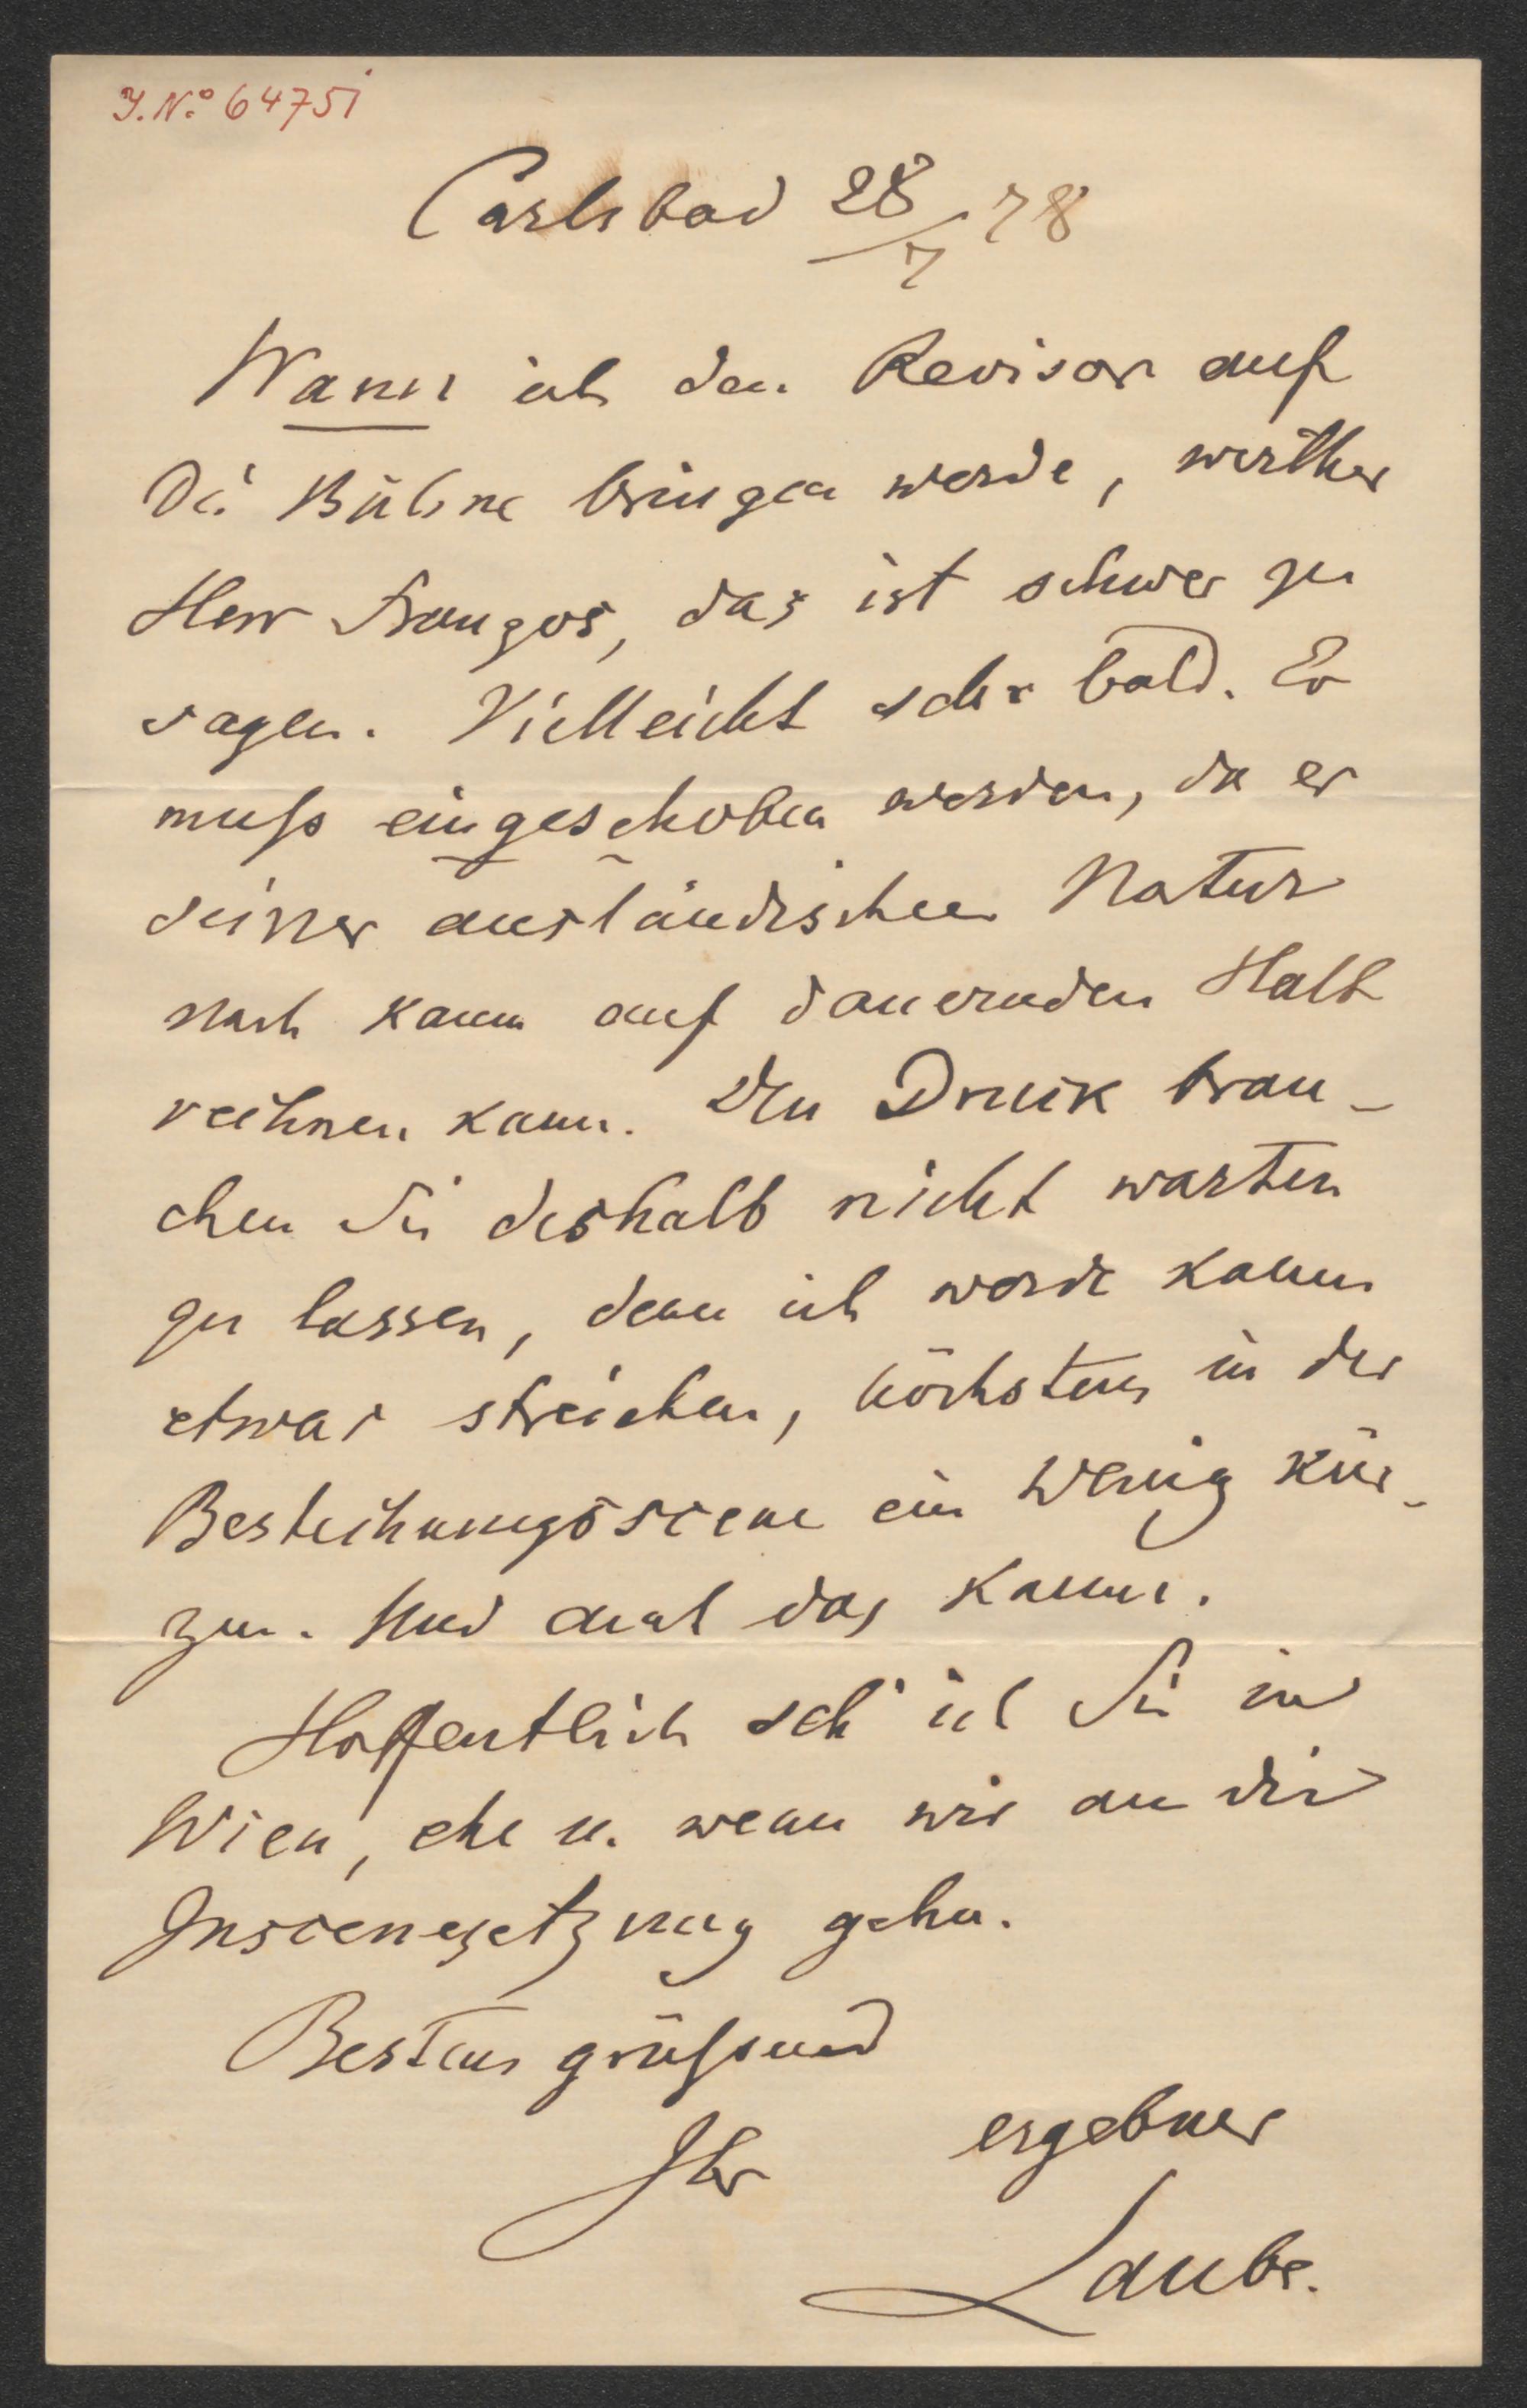 J. No 64751
Carlsbad 28/7 78
Wann ich den Revisor auf
die Bühne bringen werde, werther
Herr Franzos, das ist schwer zu
sagen. Vielleicht sehr bald. Er
muß eingeschoben werden, da er
seiner ausländischen Natur
nach kaum auf dauernden Halt
rechnen kann. Den Druck brau-
chen Sie deshalb nicht warten
zu lassen, denn ich werde kaum
etwas streichen, höchstens in der
Bestechungsscene ein wenig kür-
zen. Und auch das kaum.
Hoffentlich seh' ich Sie in
Wien, ehe u. wenn wir an die
Inscenesetzung gehn.
Bestens grüßend
Ihr ergebner
Laube.